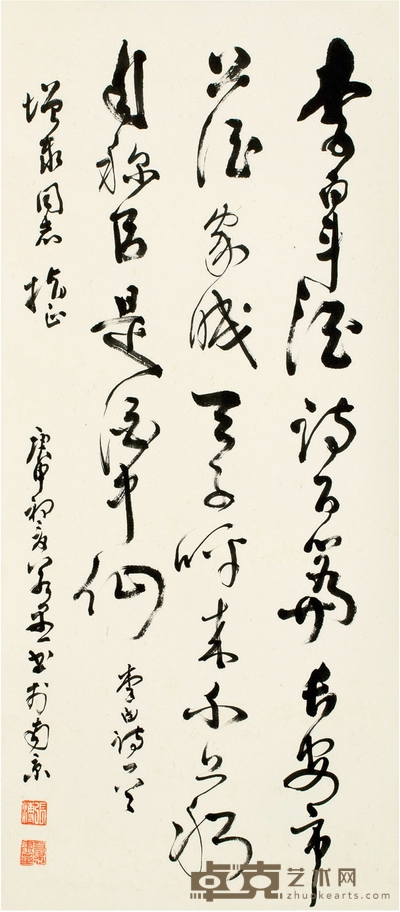 李白斗酒诗百篇长安市
上酒家眠天子呼来不上船
自称臣是酒中仙
李白诗一
增泰同志指正
庚申初夏 书于南京
卓克艺术网
zhuokearts.com